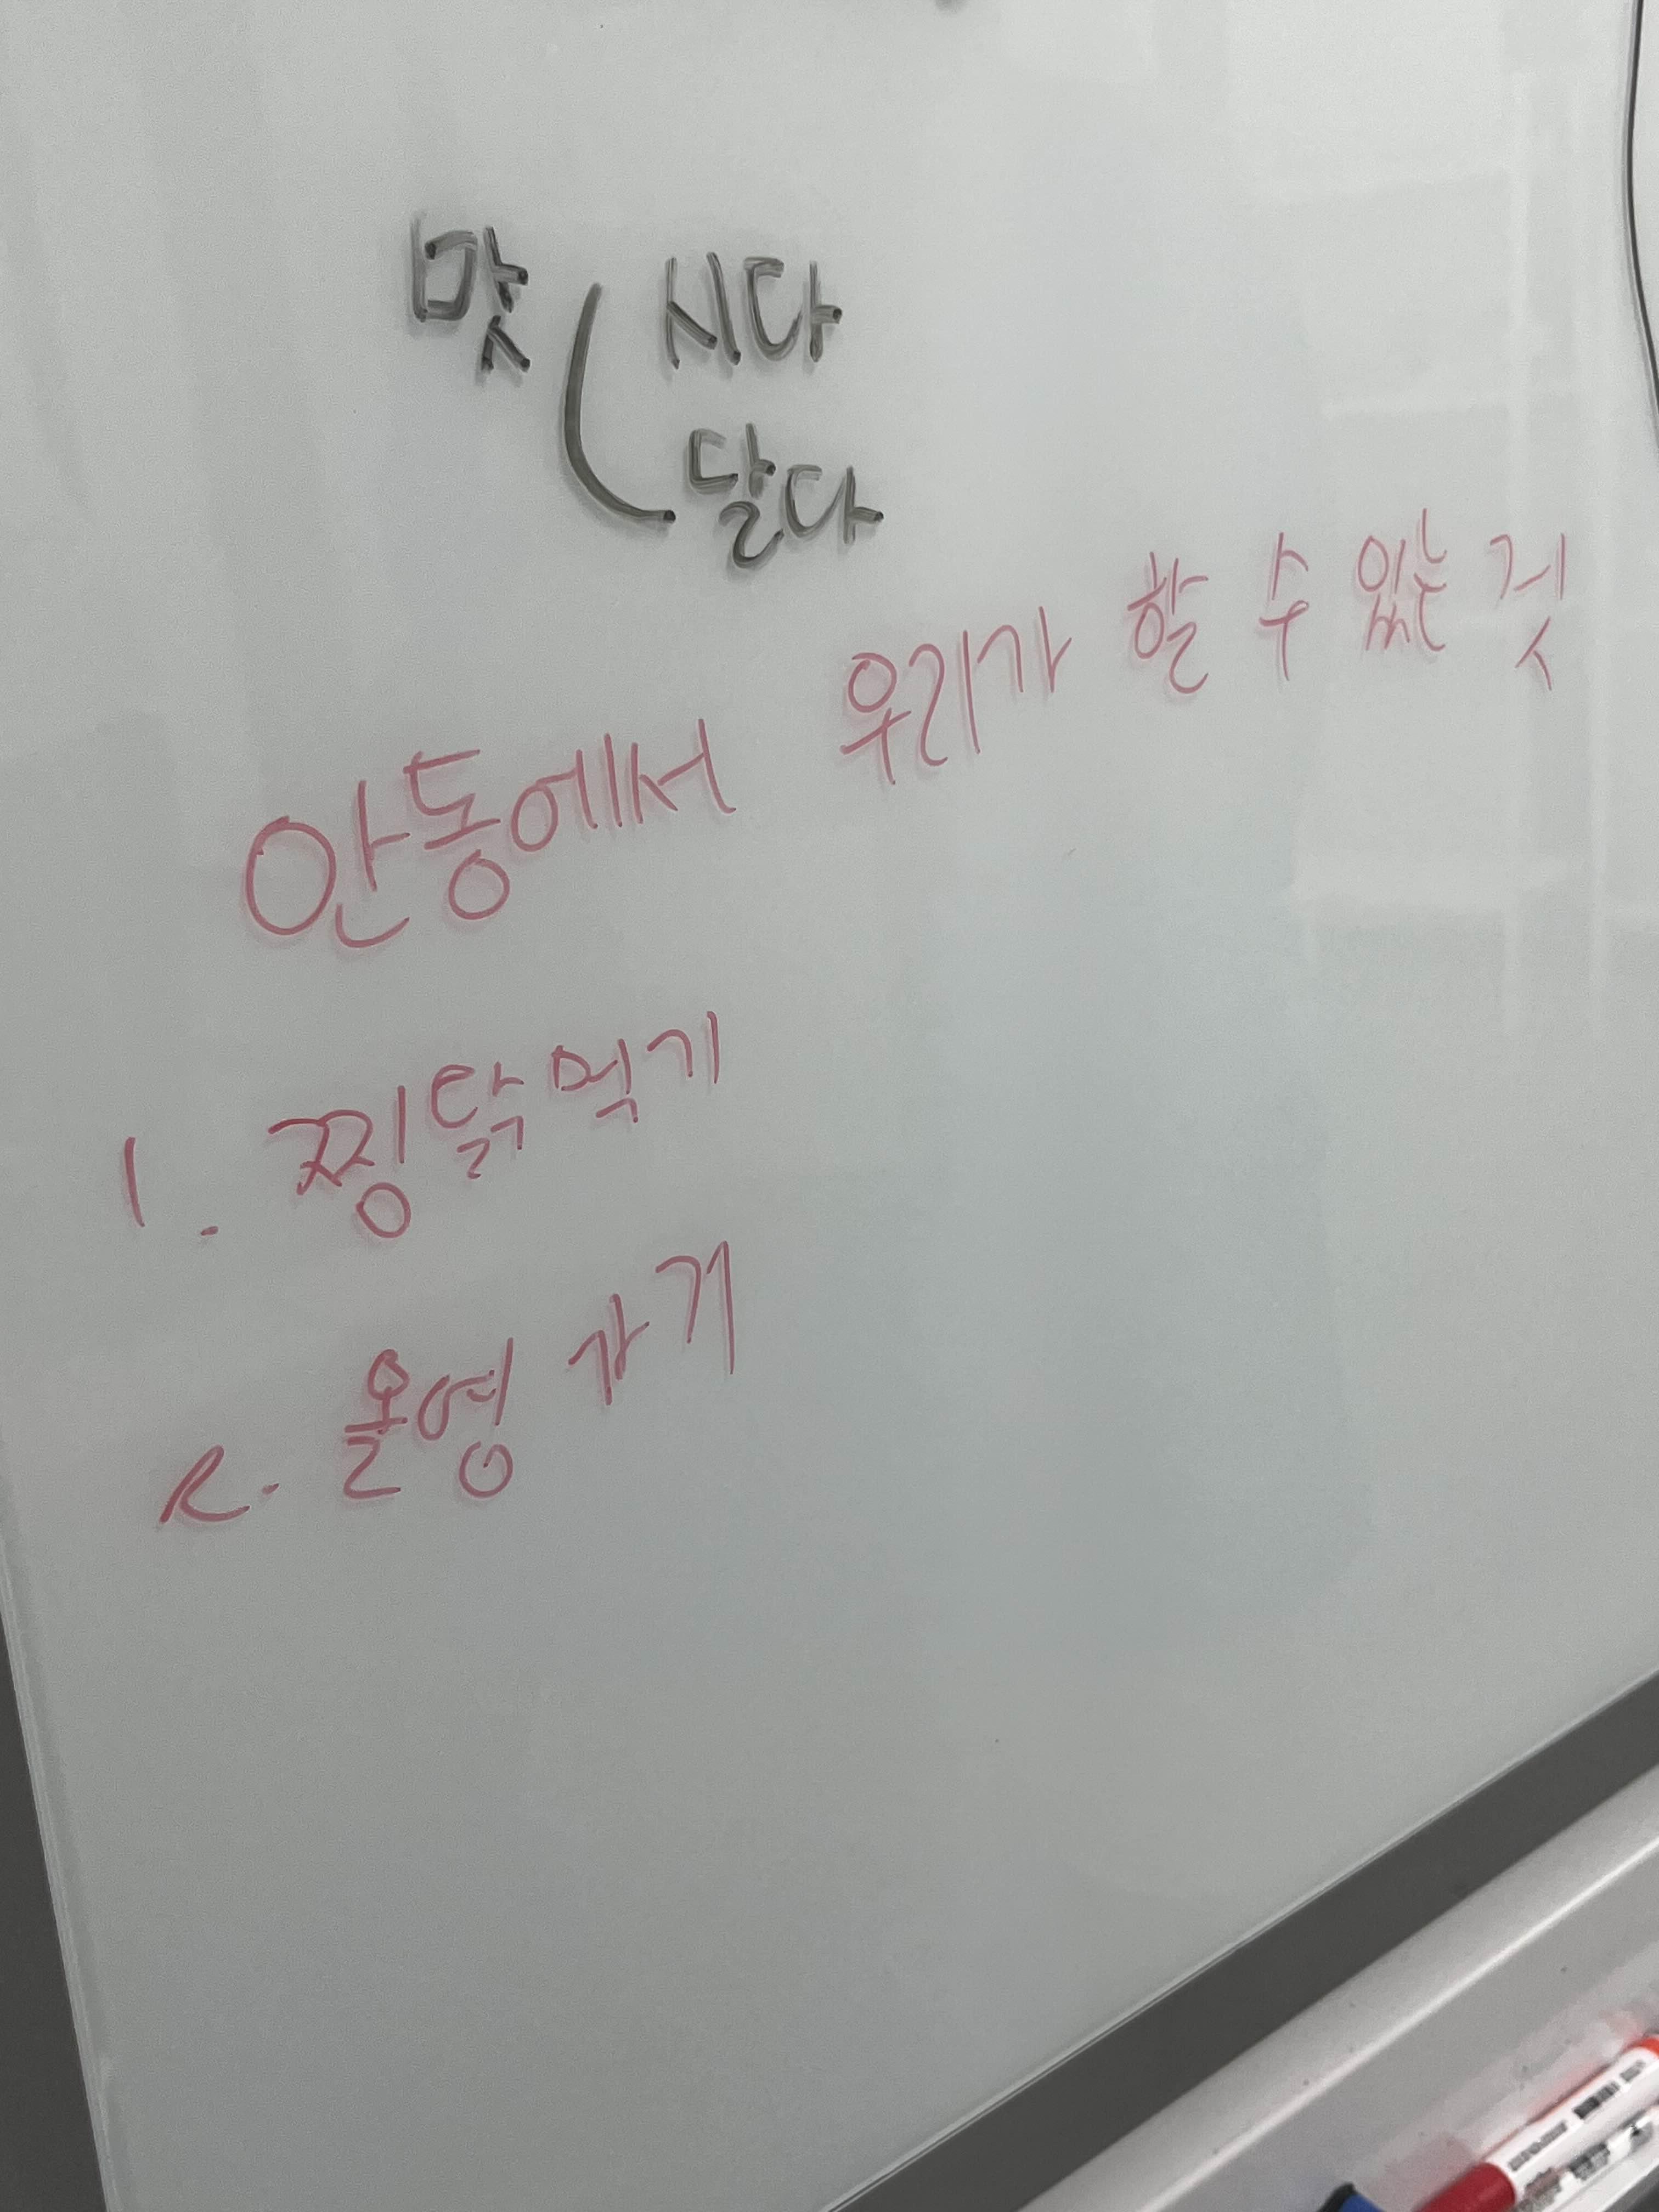 맛 ( 시다
달다
안동에서 우리가 할 수 있는 것
1. 찜닭먹기
2. 올영 가기